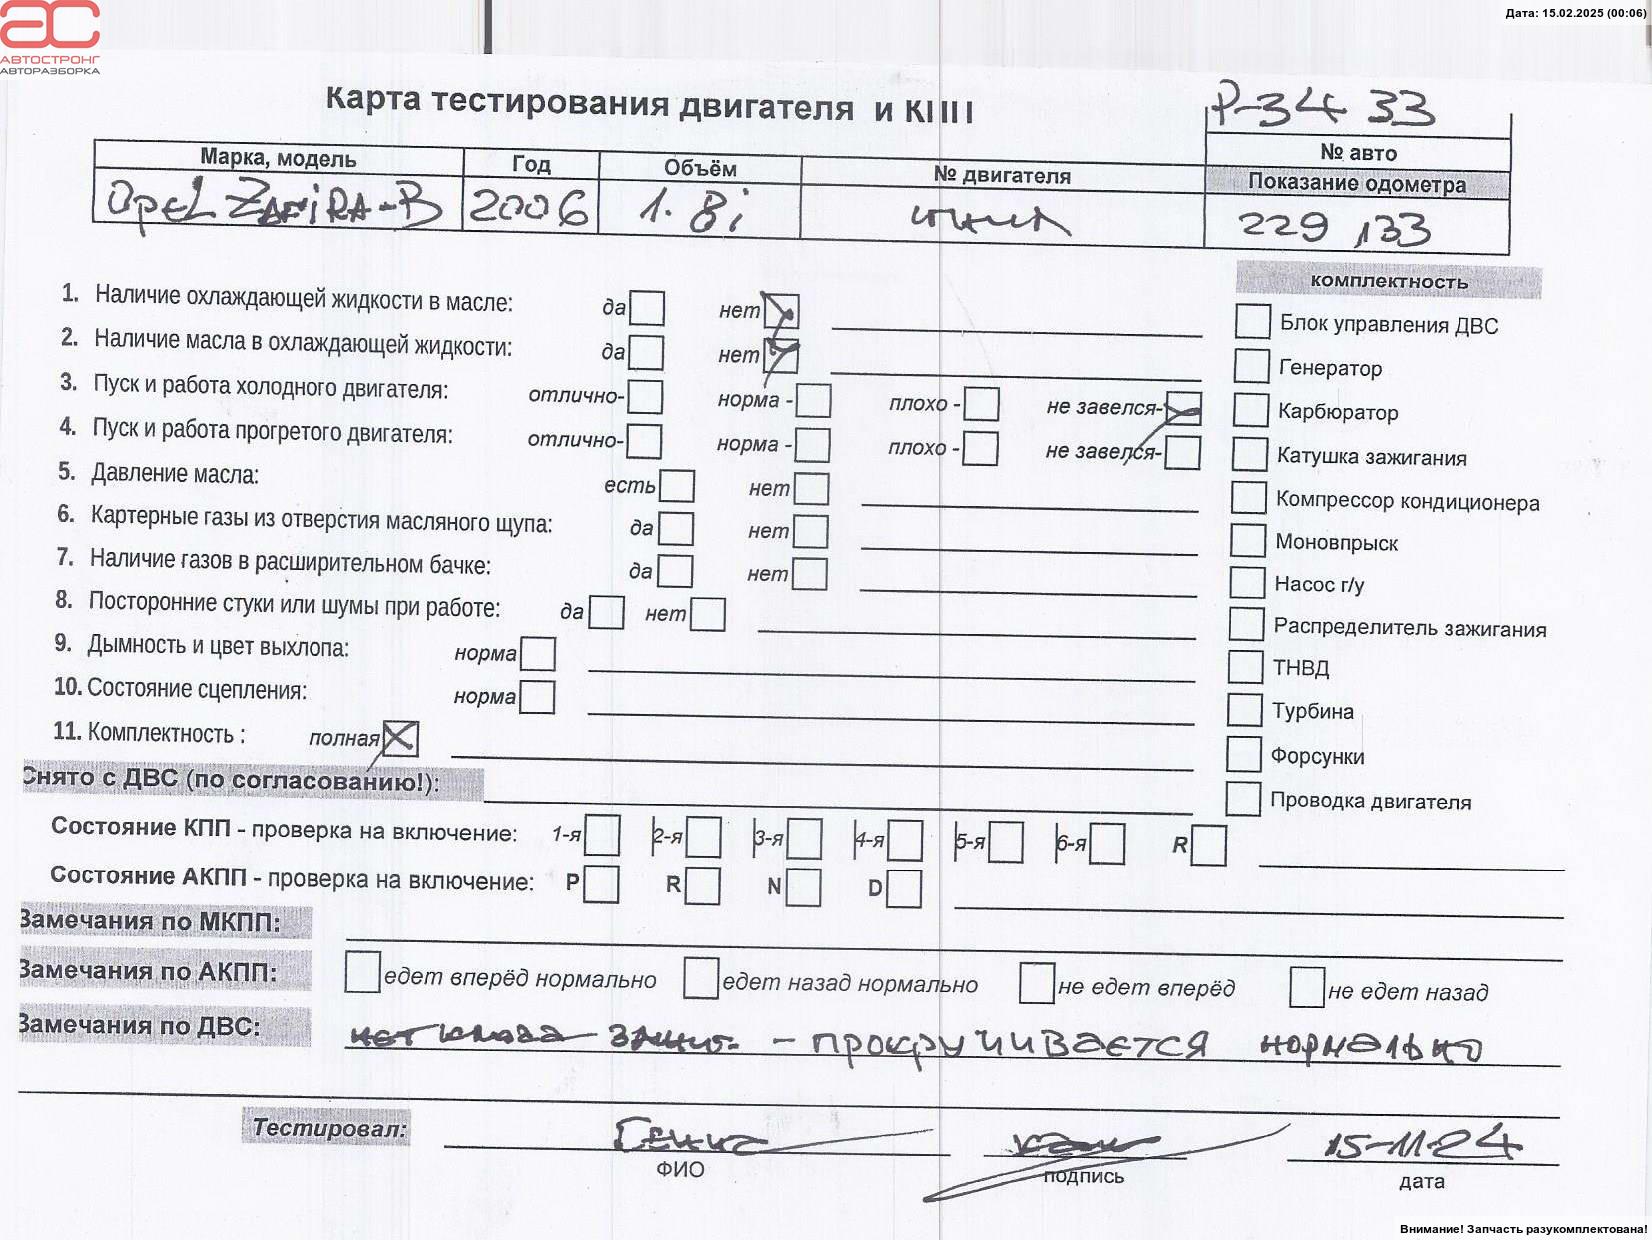 Дата: 15.02.2025 (00:06)
АС
АВТОСТРОНГ
АВТОРАЗБОРКА
Карта тестирования двигателя и КПП
Р-3433
№ авто
Марка, модель Год Объём № двигателя Показание одометра
Opel ZAFiRA-B 2006 1.8i 229,133
комплектность
1. Наличие охлаждающей жидкости в масле: да нет
2. Наличие масла в охлаждающей жидкости: да нет
3. Пуск и работа холодного двигателя: отлично- норма - плохо - не завелся-
4. Пуск и работа прогретого двигателя: отлично- норма - плохо - не завелся-
5. Давление масла: есть нет
6. Картерные газы из отверстия масляного щупа: да нет
7. Наличие газов в расширительном бачке: да нет
8. Посторонние стуки или шумы при работе: да нет
9. Дымность и цвет выхлопа: норма
10. Состояние сцепления: норма
11. Комплектность : полная
Блок управления ДВС
Генератор
Карбюратор
Катушка зажигания
Компрессор кондиционера
Моновпрыск
Насос г/у
Распределитель зажигания
ТНВД
Турбина
Форсунки
Проводка двигателя
Снято с ДВС (по согласованию!):
Состояние КПП - проверка на включение: 1-я 2-я 3-я 4-я 5-я 6-я R
Состояние АКПП - проверка на включение: P R N D
Замечания по МКПП:
Замечания по АКПП: едет вперёд нормально едет назад нормально не едет вперёд не едет назад
Замечания по ДВС: - прокручивается нормально
Тестировал: 15-11-24
ФИО подпись дата
Внимание! Запчасть разукомплектована!